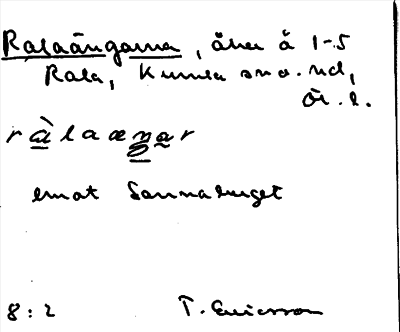 Ralaängarna, åker å 1-5
Rala, Kumla sn o. hd,
Ör. l.
r à l a æ ŋ a r
emot Sannaberget
8:2 T. Ericsson